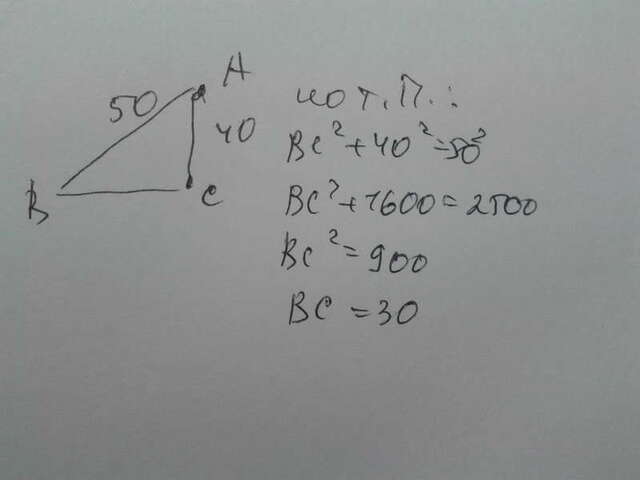 A
50
40
B
C
по т. П. :
BC²+40²=50²
BC²+1600=2500
BC²=900
BC=30